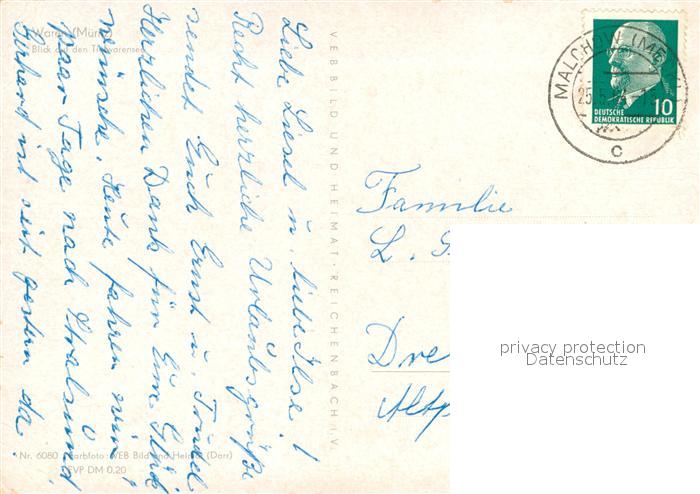 Waren (Müritz)
Blick auf den Tiefwarensee
Liebe Liesel u. liebe Ilse!
Recht herzliche Urlaubsgrüße
sendet Euch Ernst u. Trudel
Herzlichen Dank für Eure Glück
wünsche. Heute fahren wir
paar Tage nach Stralsund
Gerhard ist seit gestern da.
Nr. 6080 Farbfoto: VEB Bild und Heimat (Darr)
EVP DM 0,20
VEB BILD UND HEIMAT · REICHENBACH I. V.
MALCHOW (ME
25.5.
c
10
DEUTSCHE
DEMOKRATISCHE REPUBLIK
Familie
L. G
Dre
Altp
privacy protection
Datenschutz